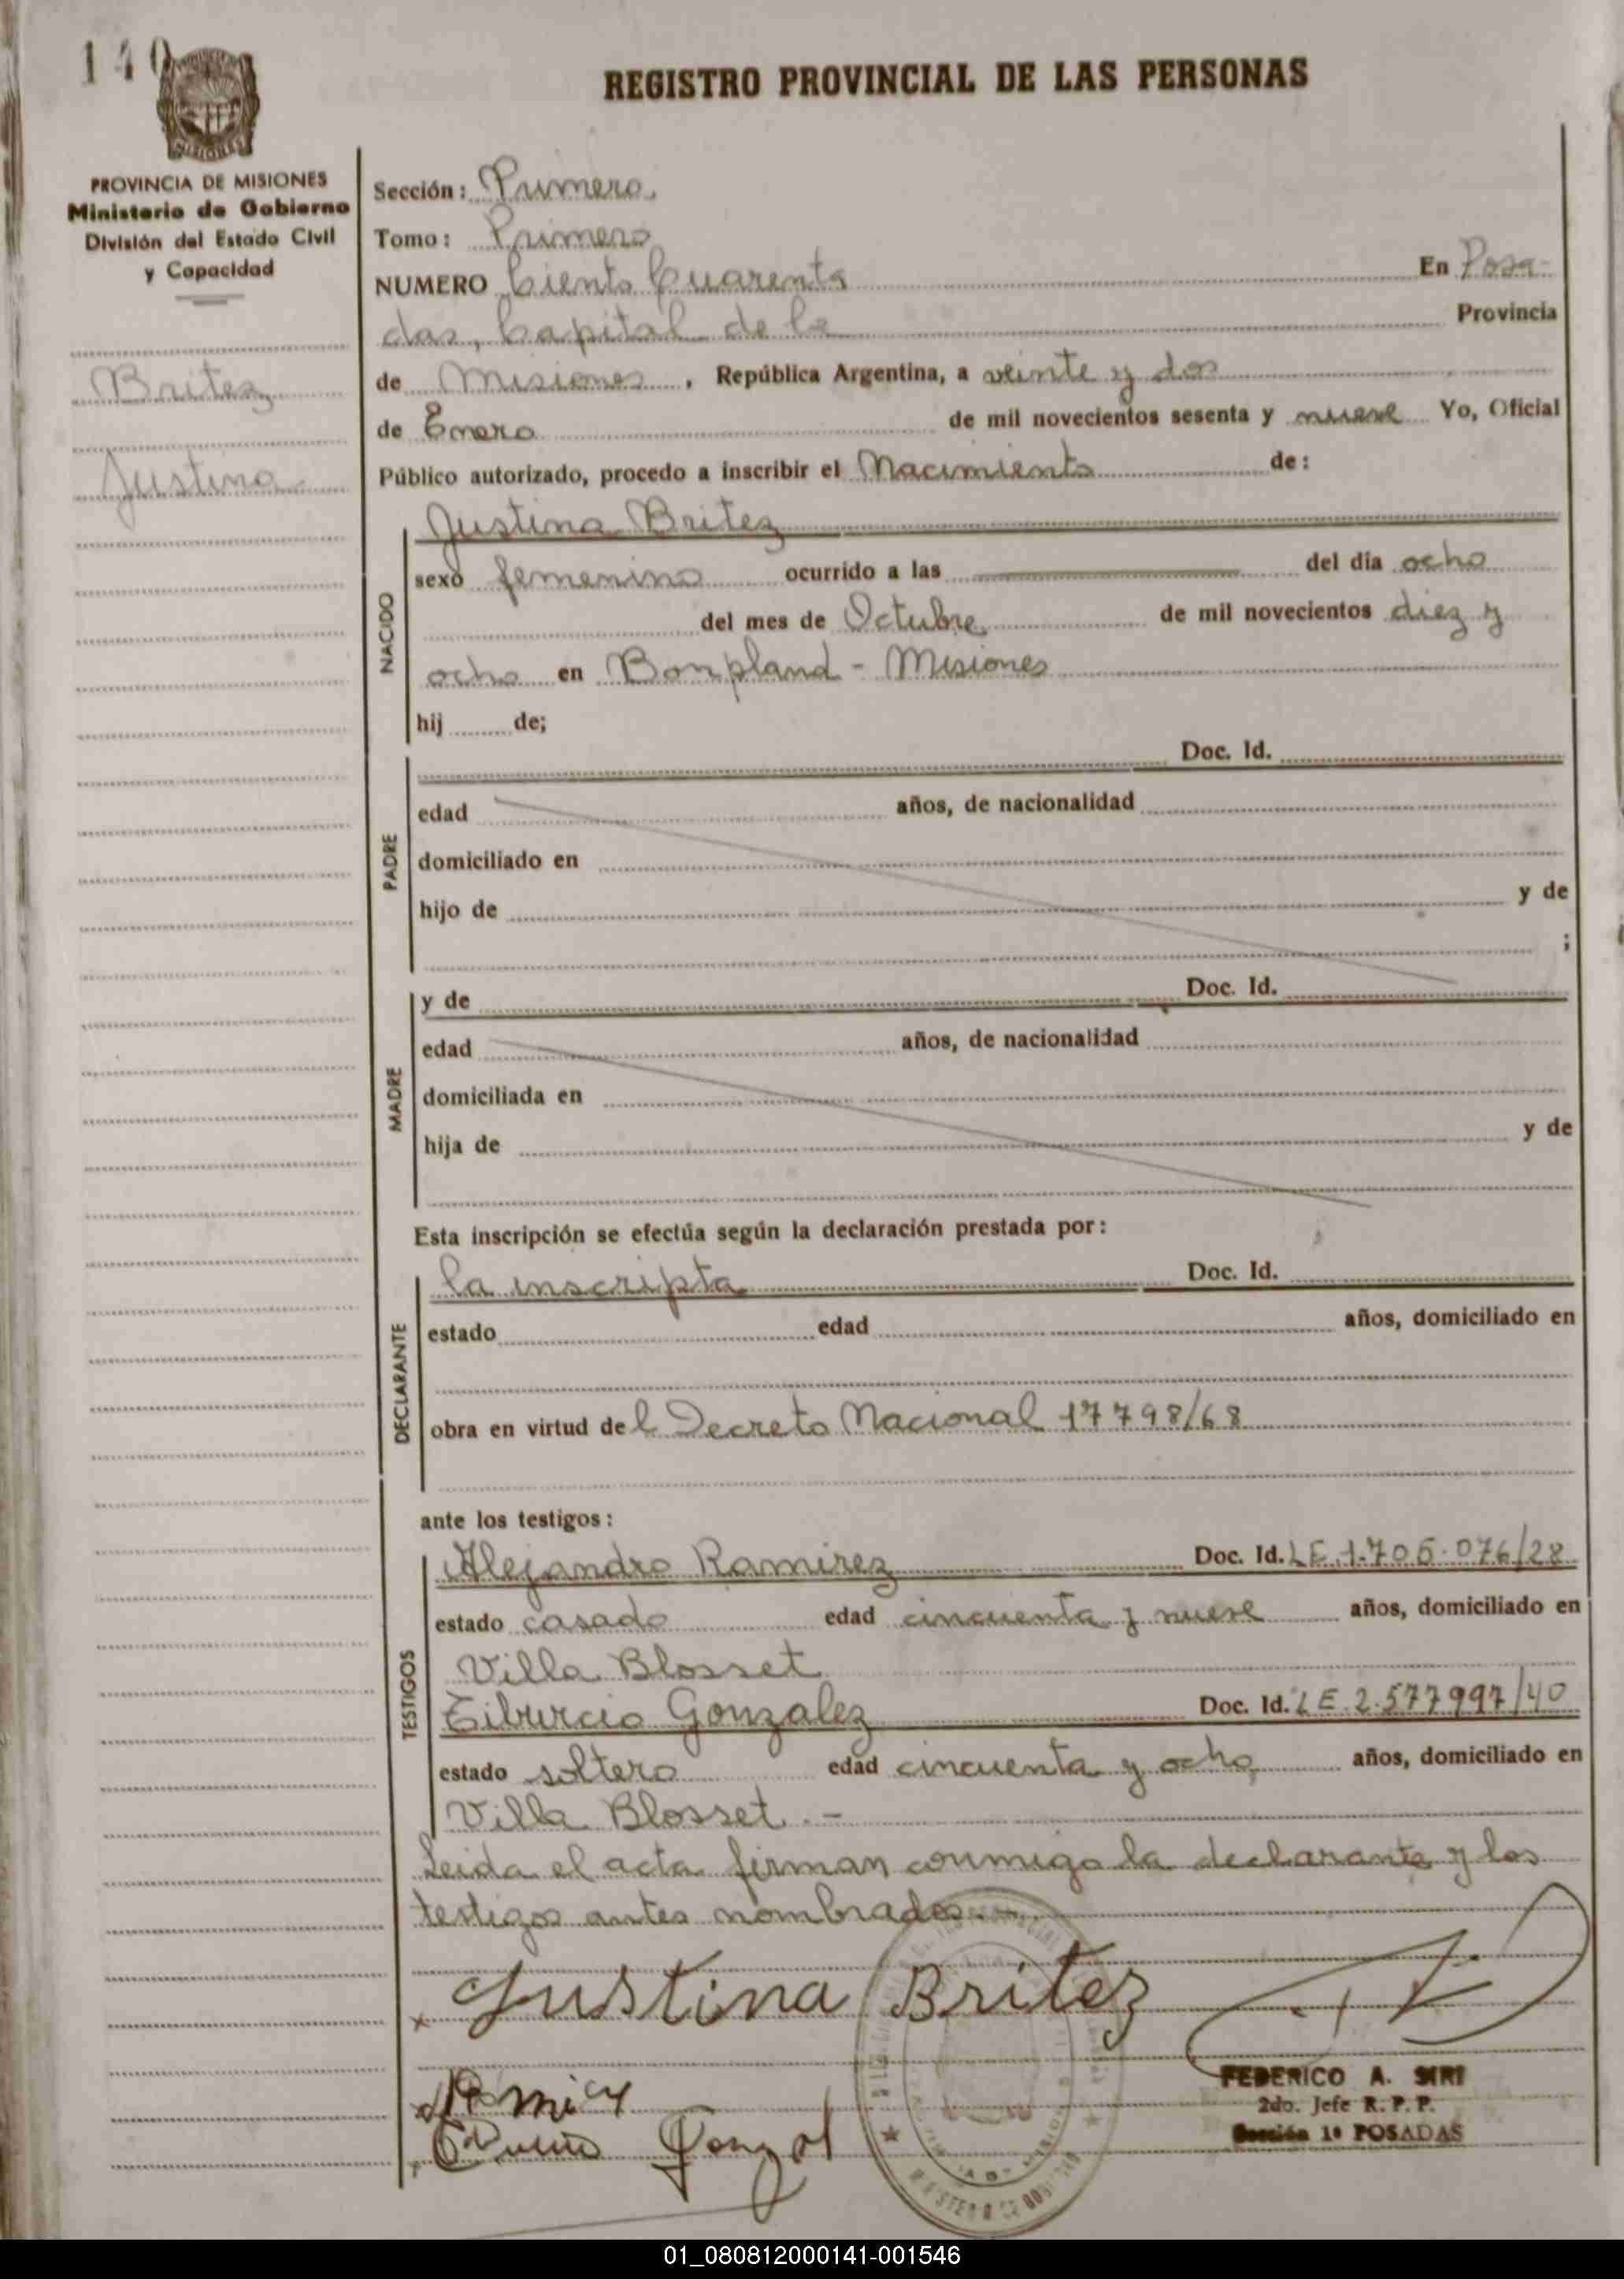 140
REGISTRO PROVINCIAL DE LAS PERSONAS
MISIONES
PROVINCIA DE MISIONES
Ministerio de Gobierno
División del Estado Civil
y Capacidad
Britez
Justina
Sección: Primera.
Tomo: Primero
NUMERO Ciento Cuarenta En Posa-
das, Capital de la Provincia
de Misiones, República Argentina, a veinte y dos
de Enero de mil novecientos sesenta y nueve Yo, Oficial
Público autorizado, procedo a inscribir el Nacimiento de:
NACIDO
Justina Britez
sexo femenino ocurrido a las del día ocho
del mes de Octubre de mil novecientos diez y
ocho en Bonpland - Misiones
hij de;
PADRE
Doc. Id.
edad años, de nacionalidad
domiciliado en
hijo de y de
;
MADRE
y de Doc. Id.
edad años, de nacionalidad
domiciliada en
hija de y de
Esta inscripción se efectúa según la declaración prestada por:
DECLARANTE
la inscripta Doc. Id.
estado edad años, domiciliado en
obra en virtud del Decreto Nacional 17798/68
ante los testigos:
TESTIGOS
Alejandro Ramirez Doc. Id. LE.1.705.076/28
estado casado edad cincuenta y nueve años, domiciliado en
Villa Blosset
Tiburcio Gonzalez Doc. Id. LE.2.577997/40
estado soltero edad cincuenta y ocho años, domiciliado en
Villa Blosset.-
Leida el acta firman conmigo la declarante y los
testigos antes nombrados.-
x Justina Britez
FEDERICO A. SIRI
2do. Jefe R. P. P.
Sección 1ª POSADAS
01_080812000141-001546